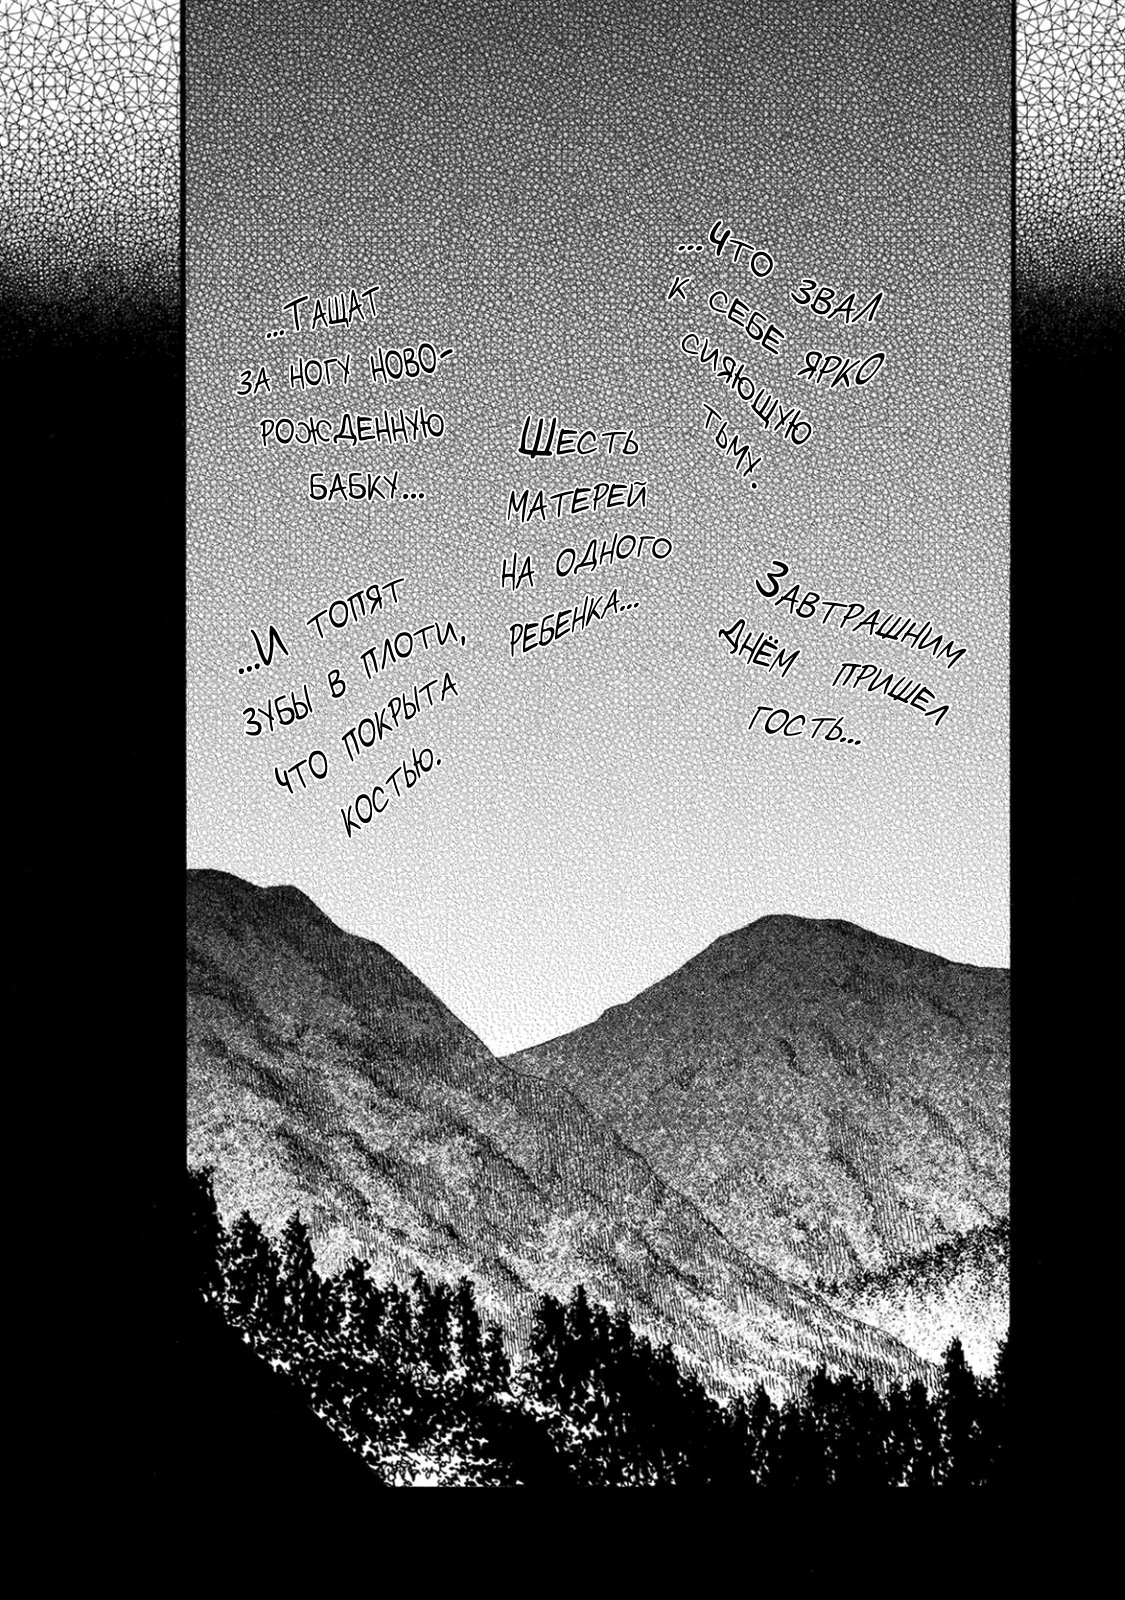 Завтрашним
днём пришел
гость...
...Что звал
к себе ярко
сияющую
тьму.
Шесть
матерей
на одного
ребенка...
...Тащат
за ногу ново-
рожденную
бабку...
...И топят
зубы в плоти,
что покрыта
костью.